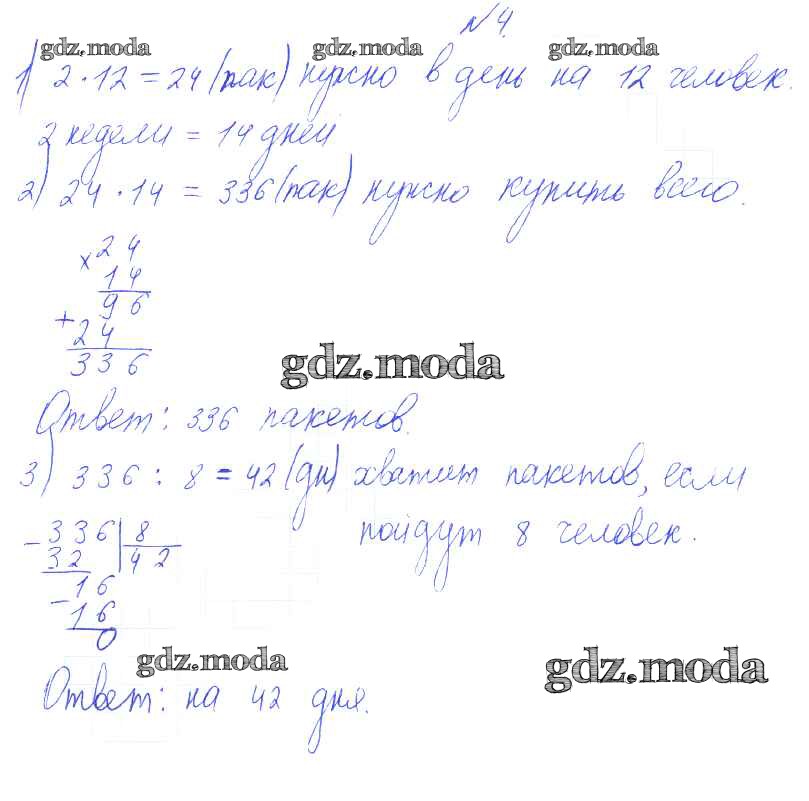 №4.
gdz.moda gdz.moda gdz.moda
1) 2·12=24(пак) нужно в день на 12 человек.
2 недели = 14 дней
2) 24·14 = 336(пак) нужно купить всего.
× 24
14
96
+
24
336
gdz.moda
Ответ: 336 пакетов.
3) 336 : 8 = 42 (дн) хватит пакетов, если
пойдут 8 человек.
- 336 | 8
32 | 42
16
- 16
0
gdz.moda gdz.moda
Ответ: на 42 дня.